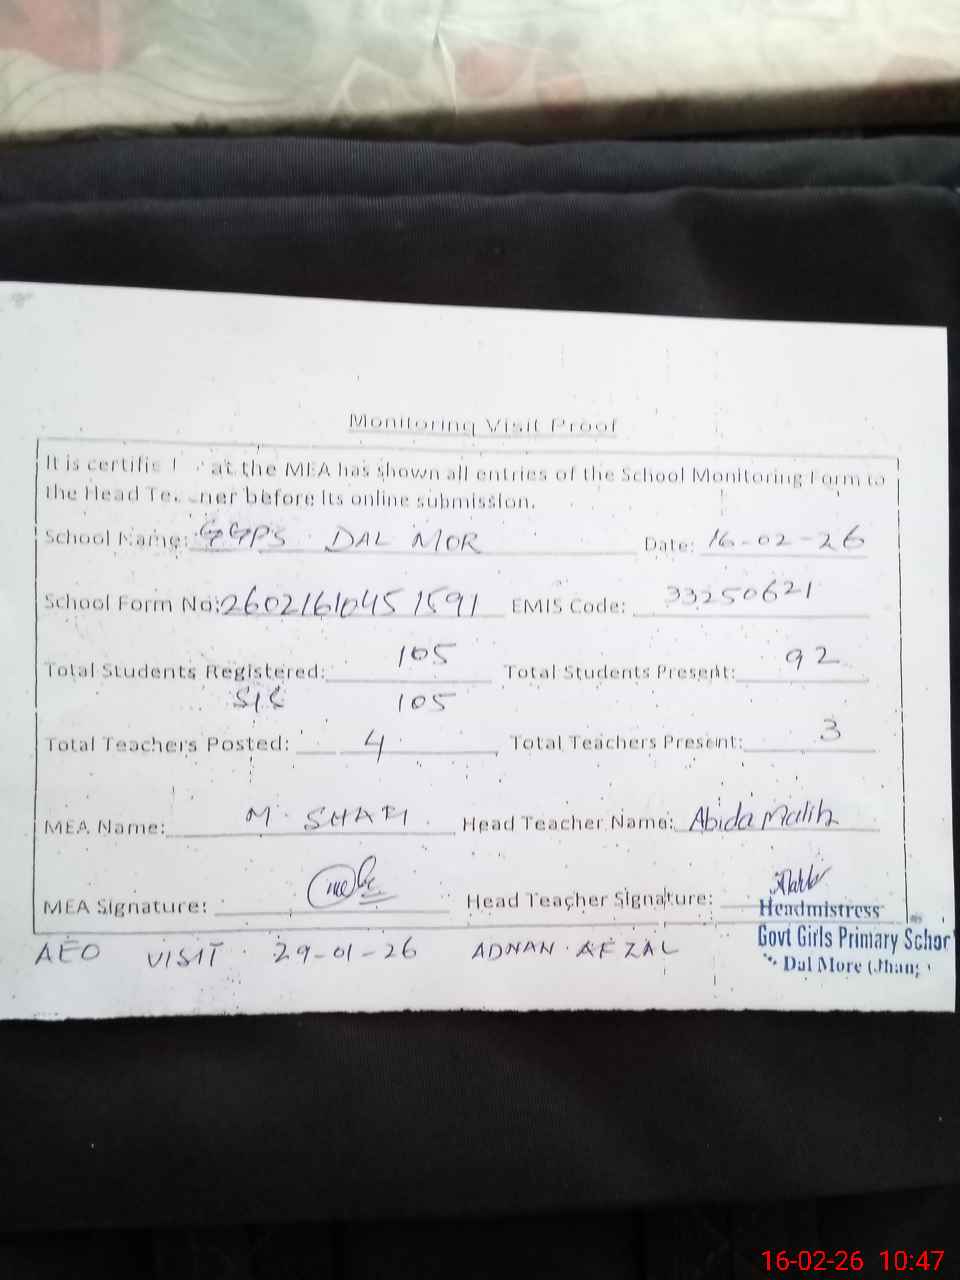 Monitoring Visit Proof
It is certifie at the MEA has shown all entries of the School Monitoring Form to
the Head Te ner before its online submission.
School Name: GGPS DAL MOR Date: 16-02-26
School Form No: 2602161045 1591 EMIS Code: 33250621
Total Students Registered: 105 Total Students Present: 92
SIS 105
Total Teachers Posted: 4 Total Teachers Present: 3
MEA Name: M. SHAFI Head Teacher Name: Abida Malik
MEA Signature: Head Teacher Signature:
Headmistress
Govt Girls Primary School
Dal More (Jhang
AEO VISIT 29-01-26 ADNAN AFZAL
16-02-26 10:47